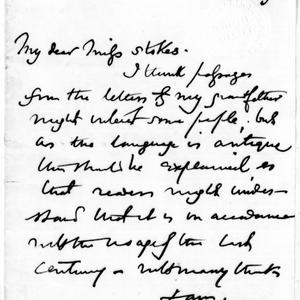 My dear Miss Stokes.
I think passages
from the letters of my grandfather
might interest some people. but
as the language is antique
this should be explained so
that readers might under-
stand that it is in accordance
with the usage of the last
century. with many thanks
I am